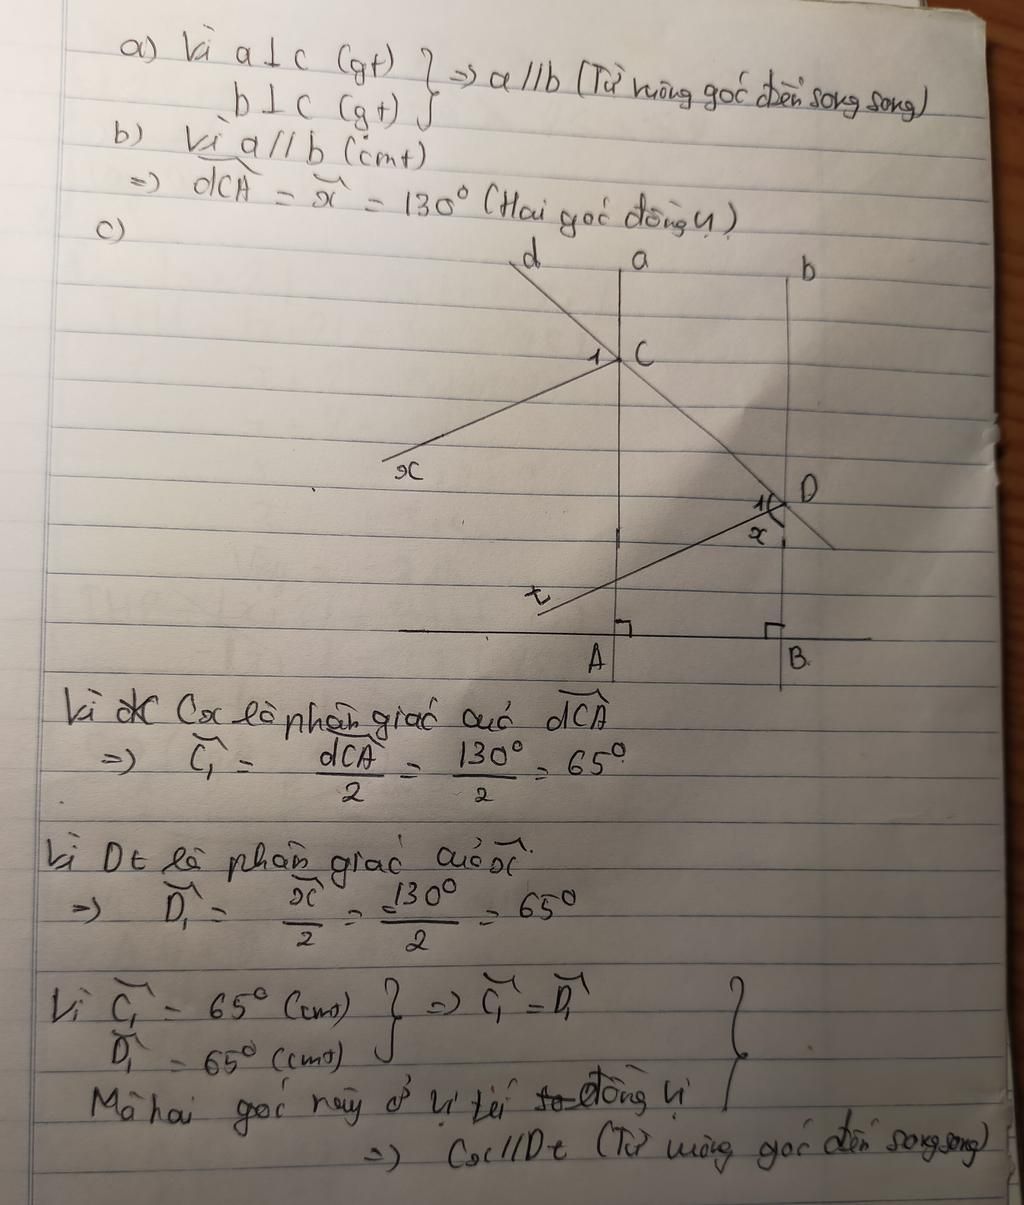 a) Vì a ⊥ c (gt) } => a // b (Từ vuông góc đến song song)
b ⊥ c (gt)
b) Vì a // b (cmt)
=> dCA = x = 130° (Hai góc đồng vị)
c)
d a b
1 C
x
1 D
x
t
A B
Vì Cx là phân giác của dCA
=> C₁ = dCA/2 = 130°/2 = 65°
Vì Dt là phân giác của x
=> D₁ = x/2 = 130°/2 = 65°
Vì C₁ = 65° (cmt) } => C₁ = D₁ }
D₁ = 65° (cmt)
Mà hai góc này ở vị trí đồng vị
=> Cx // Dt (Từ vuông góc đến song song)